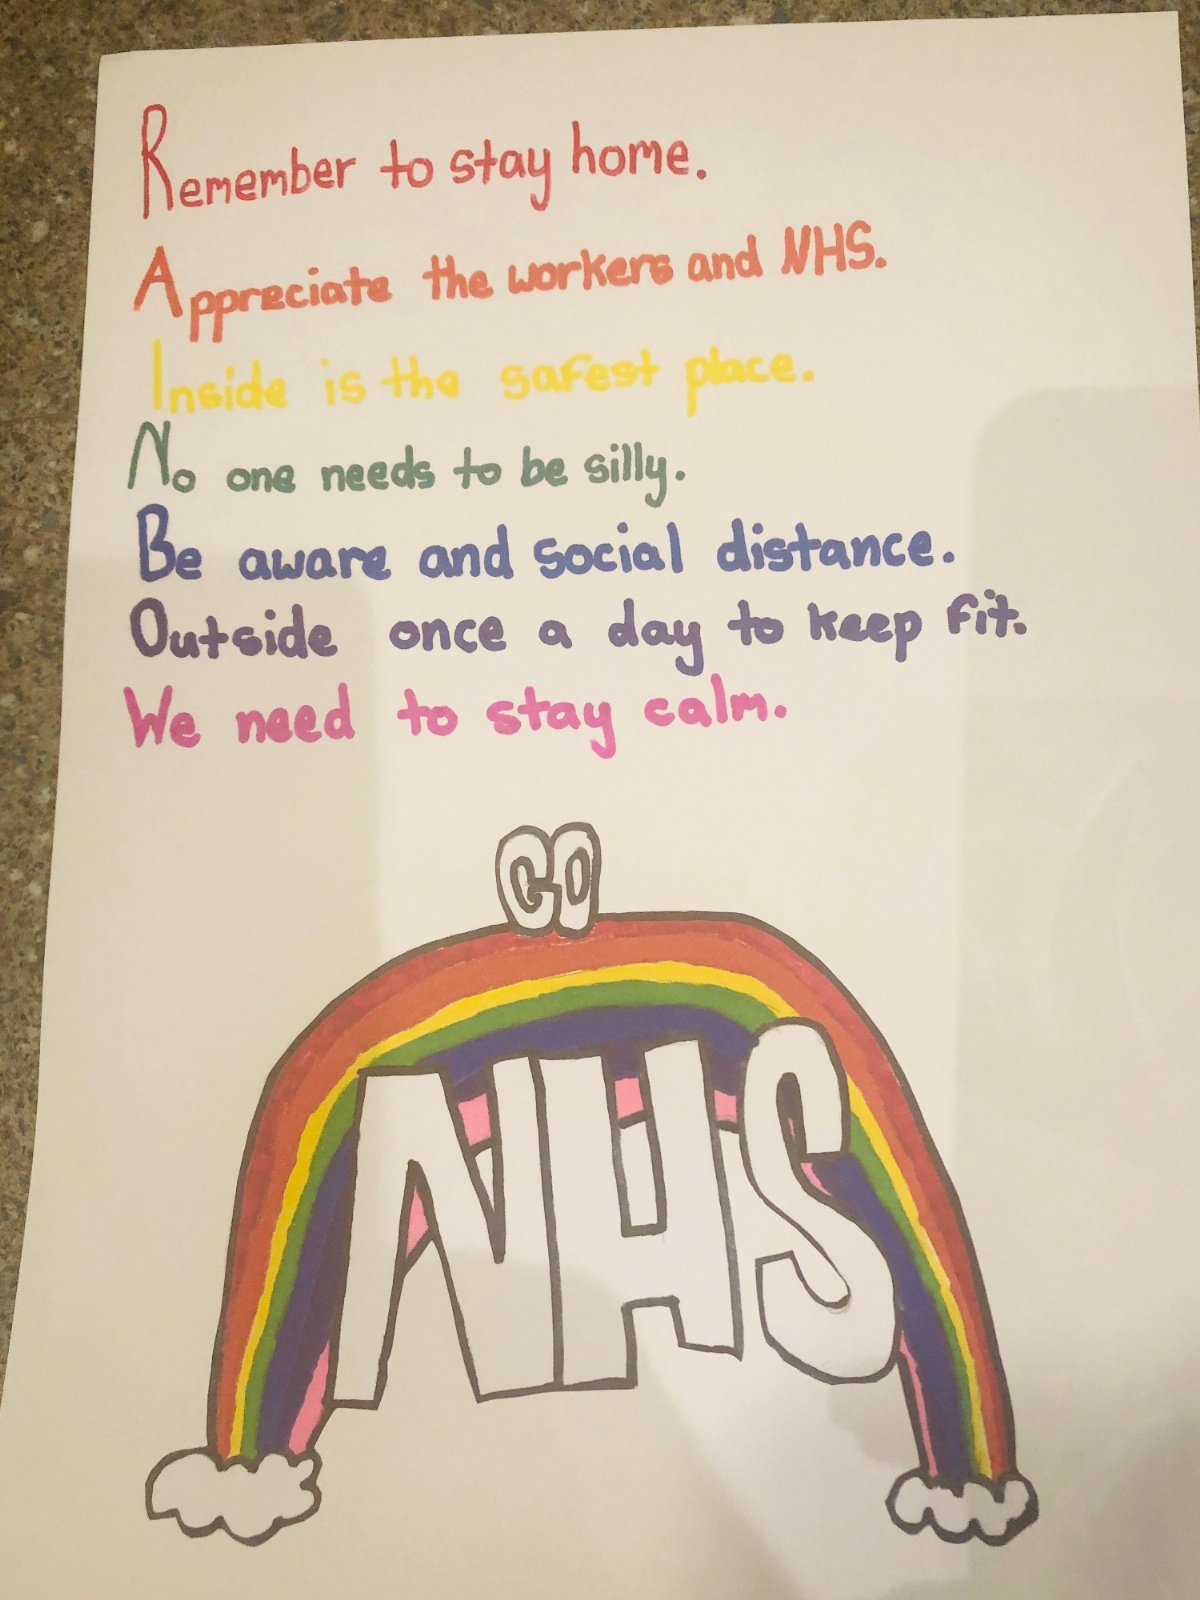 Remember to stay home.
Appreciate the workers and NHS.
Inside is the safest place.
No one needs to be silly.
Be aware and social distance.
Outside once a day to keep fit.
We need to stay calm.
GO
NHS